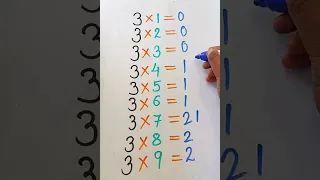 3 × 1 = 0
3 × 2 = 0
3 × 3 = 0
3 × 4 = 1
3 × 5 = 1
3 × 6 = 1
3 × 7 = 21
3 × 8 = 2
3 × 9 = 2